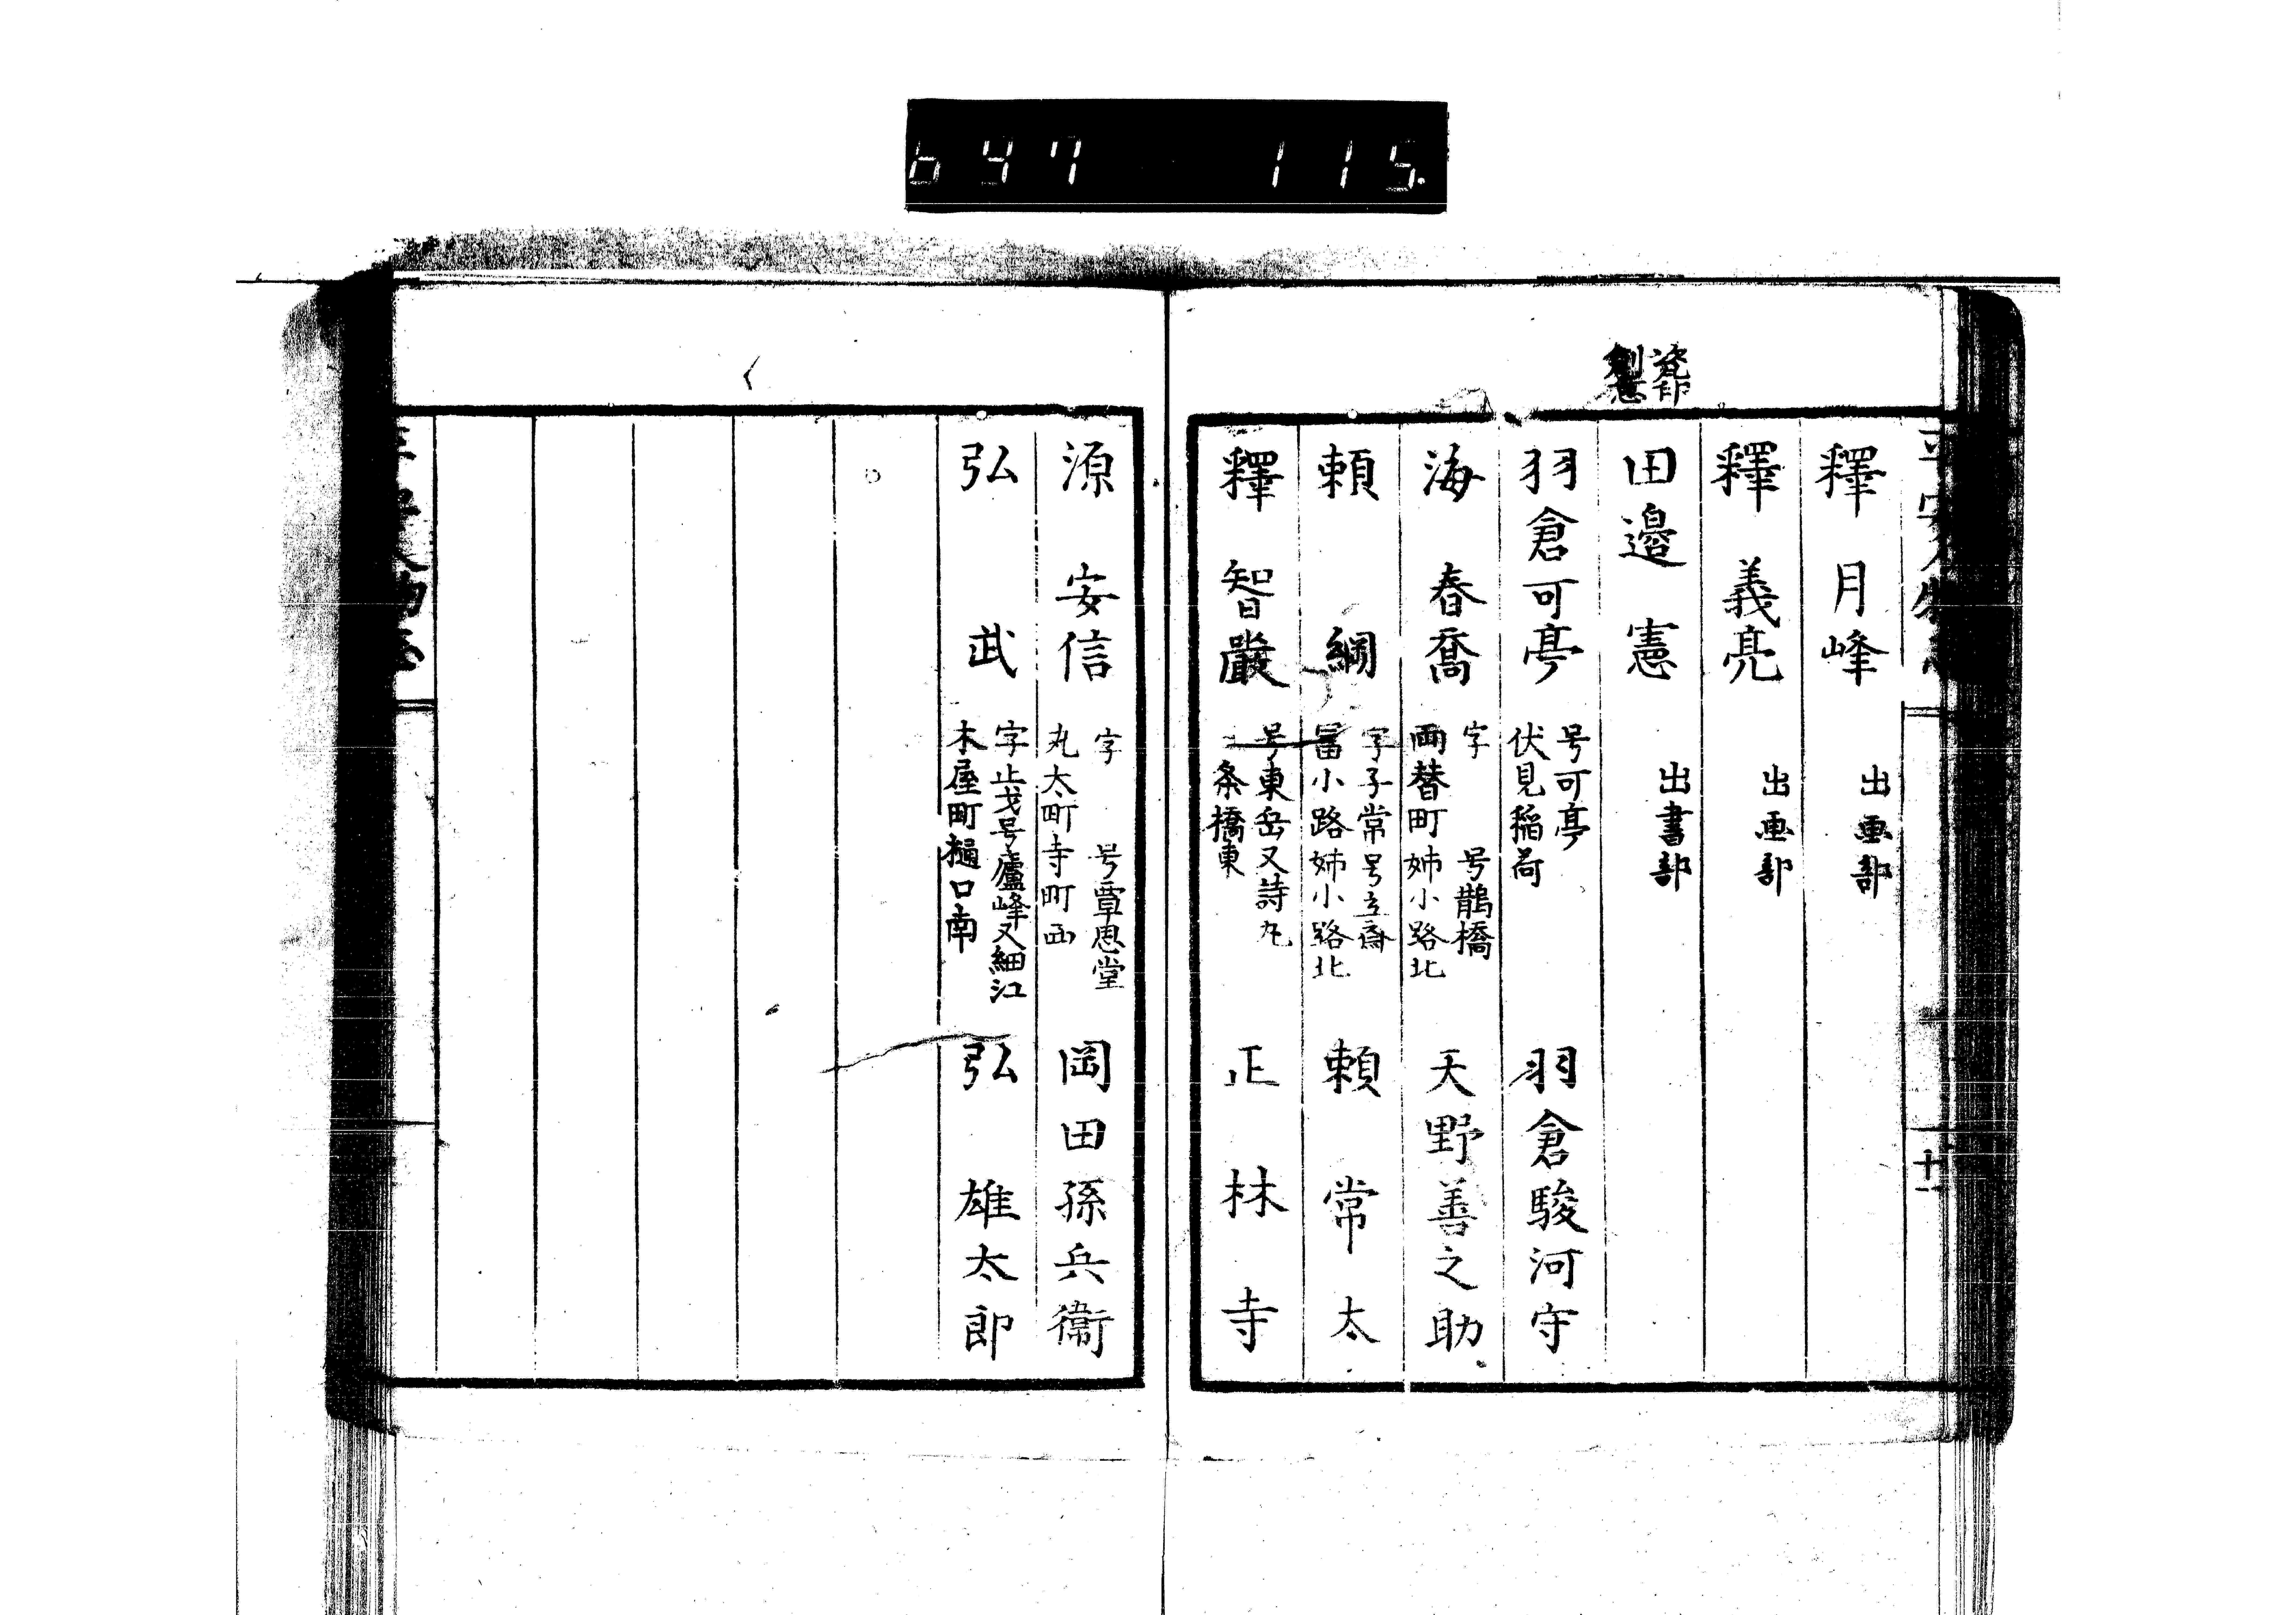 647 115.
瓷印
創意
釋月峰 出画部
釋義亮 出画部
田邉憲 出書部
羽倉可亭 号可亭 羽倉駿河守
伏見稲荷
海春喬 字 号鵲橋 天野善之助
両替町姉小路北
頼綱 字子常号立齋 頼常太
冨小路姉小路北
釋智嚴 号東岳又詩丸 正林寺
条橋東
十一
源安信 字 号覃恩堂 岡田孫兵衛
丸太町寺町西
弘武 字止戈号廬峰又細江 弘雄太郎
木屋町樋口南